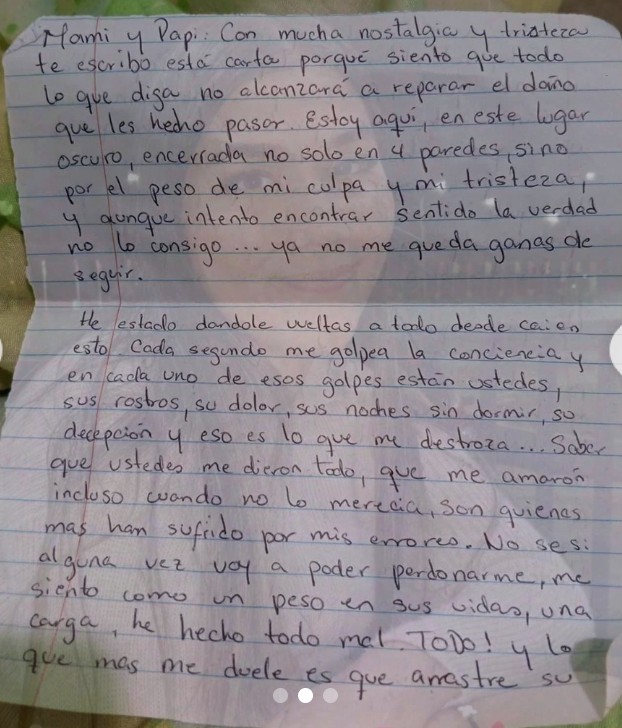 Mami y Papi: Con mucha nostalgia y tristeza
te escribo está carta porqué siento que todo
lo que diga no alcanzará a reparar el daño
que les hecho pasar. Estoy aquí, en este lugar
oscuro, encerrada no solo en 4 paredes, sino
por el peso de mi culpa y mi tristeza,
y aunque intento encontrar sentido la verdad
no lo consigo... ya no me queda ganas de
seguir.
He estado dandole vueltas a todo desde cai en
esto Cada segundo me golpea la conciencia y
en cada uno de esos golpes están ustedes,
sus rostros, su dolor, sus noches sin dormir, su
decepción y eso es lo que me destroza... Saber
que ustedes me dieron todo, que me amarón
incluso cuando no lo merecia, son quienes
mas han sufrido por mis errores. No se si
alguna vez voy a poder perdonarme, me
siento como un peso en sus vidas, una
carga, he hecho todo mal. TODO! y lo
que mas me duele es que arrastre su